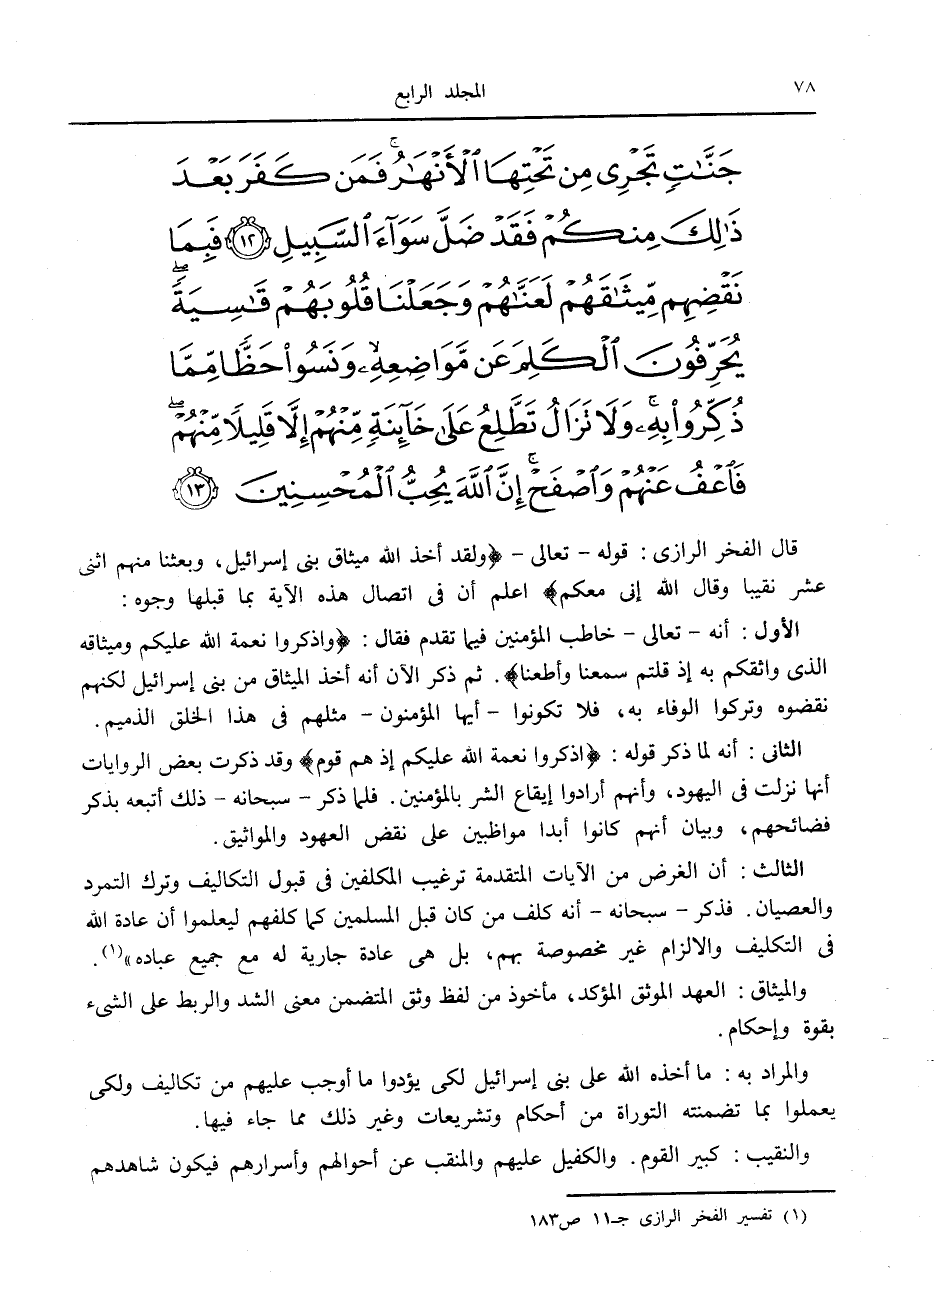 ٧٨
المجلد الرابع
جَنَّـٰتٍ تَجْرِى مِن تَحْتِهَا ٱلْأَنْهَـٰرُ ۚ فَمَن كَفَرَ بَعْدَ
ذَٰلِكَ مِنكُمْ فَقَدْ ضَلَّ سَوَآءَ ٱلسَّبِيلِ ﴿١٢﴾ فَبِمَا
نَقْضِهِم مِّيثَـٰقَهُمْ لَعَنَّـٰهُمْ وَجَعَلْنَا قُلُوبَهُمْ قَـٰسِيَةً ۖ
يُحَرِّفُونَ ٱلْكَلِمَ عَن مَّوَاضِعِهِۦ ۙ وَنَسُوا۟ حَظًّا مِّمَّا
ذُكِّرُوا۟ بِهِۦ ۚ وَلَا تَزَالُ تَطَّلِعُ عَلَىٰ خَآئِنَةٍ مِّنْهُمْ إِلَّا قَلِيلًا مِّنْهُمْ ۖ
فَٱعْفُ عَنْهُمْ وَٱصْفَحْ ۚ إِنَّ ٱللَّهَ يُحِبُّ ٱلْمُحْسِنِينَ ﴿١٣﴾
قال الفخر الرازى : قوله - تعالى - ﴿ولقد أخذ الله ميثاق بنى إسرائيل، وبعثنا منهم اثنى
عشر نقيبا وقال الله إنى معكم﴾ اعلم أن فى اتصال هذه الآية بما قبلها وجوه :
الأول : أنه - تعالى - خاطب المؤمنين فيما تقدم فقال : ﴿واذكروا نعمة الله عليكم وميثاقه
الذى واثقكم به إذ قلتم سمعنا وأطعنا﴾. ثم ذكر الآن أنه أخذ الميثاق من بنى إسرائيل لكنهم
نقضوه وتركوا الوفاء به، فلا تكونوا - أيها المؤمنون - مثلهم فى هذا الخلق الذميم.
الثانى : أنه لما ذكر قوله : ﴿اذكروا نعمة الله عليكم إذ هم قوم﴾ وقد ذكرت بعض الروايات
أنها نزلت فى اليهود، وأنهم أرادوا إيقاع الشر بالمؤمنين. فلما ذكر - سبحانه - ذلك أتبعه بذكر
فضائحهم، وبيان أنهم كانوا أبدا مواظبين على نقض العهود والمواثيق.
الثالث : أن الغرض من الآيات المتقدمة ترغيب المكلفين فى قبول التكاليف وترك التمرد
والعصيان. فذكر - سبحانه - أنه كلف من كان قبل المسلمين كما كلفهم ليعلموا أن عادة الله
فى التكليف والالزام غير مخصوصة بهم، بل هى عادة جارية له مع جميع عباده»(١).
والميثاق : العهد الموثق المؤكد، مأخوذ من لفظ وثق المتضمن معنى الشد والربط على الشىء
بقوة وإحكام.
والمراد به : ما أخذه الله على بنى إسرائيل لكى يؤدوا ما أوجب عليهم من تكاليف ولكى
يعملوا بما تضمنته التوراة من أحكام وتشريعات وغير ذلك مما جاء فيها.
والنقيب : كبير القوم. والكفيل عليهم والمنقب عن أحوالهم وأسرارهم فيكون شاهدهم
(١) تفسير الفخر الرازى جـ١١ ص١٨٣